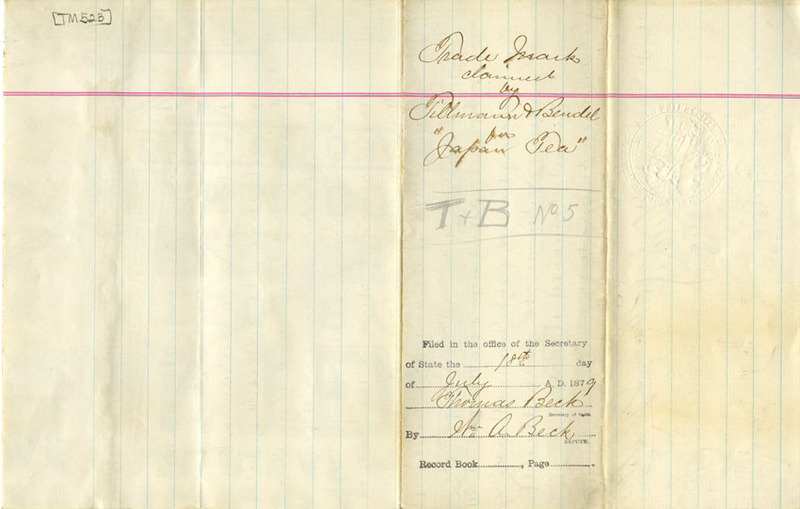 [TM523]
Trade Mark
claimed
by
Tillmann & Bendel
for
"Japan Tea"
T + B No 5
Filed in the office of the Secretary
of State the 18th day
of July A. D. 1879
Thomas Beck
Secretary of State.
By Wm A. Beck
DEPUTY.
Record Book, Page